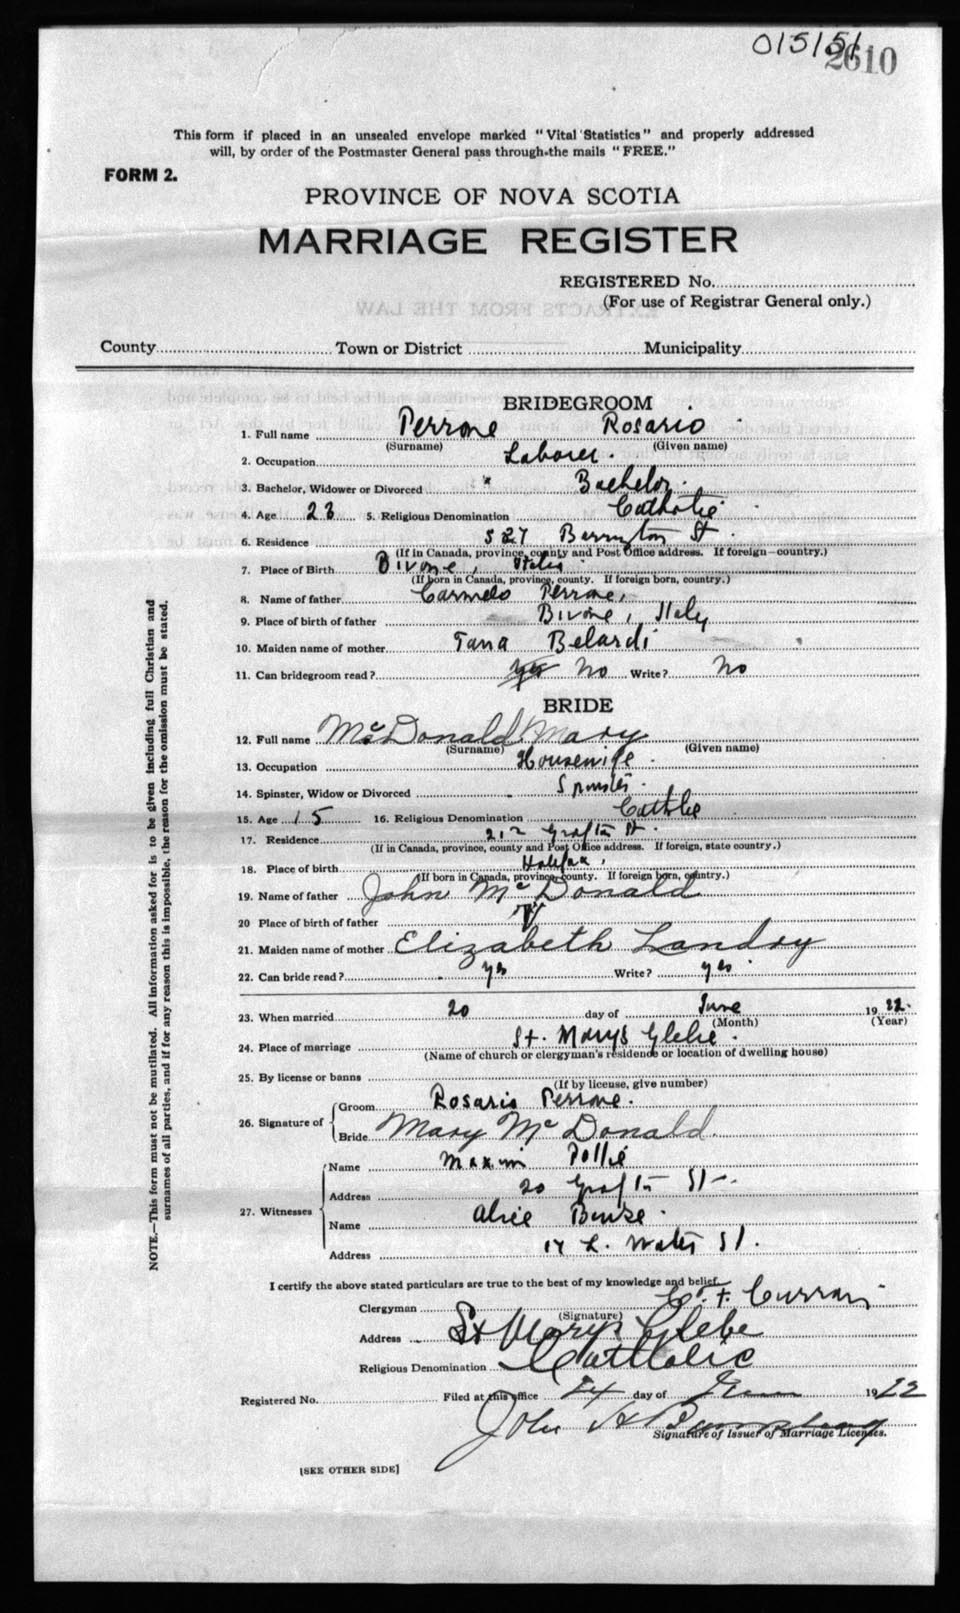 015151
2610
This form if placed in an unsealed envelope marked "Vital Statistics" and properly addressed
will, by order of the Postmaster General pass through the mails "FREE."
FORM 2.
PROVINCE OF NOVA SCOTIA
MARRIAGE REGISTER
REGISTERED No.
(For use of Registrar General only.)
EXTRACTS FROM THE LAW
County Town or District Municipality
BRIDEGROOM
1. Full name Perrone Rosario
(Surname) (Given name)
2. Occupation Laborer.
3. Bachelor, Widower or Divorced Bachelor.
4. Age 23 5. Religious Denomination Catholic
6. Residence 527 Barrington St.
(If in Canada, province, county and Post Office address. If foreign—country.)
7. Place of Birth Bivone, Italy
(If born in Canada, province, county. If foreign born, country.)
8. Name of father Carmelo Perrone,
9. Place of birth of father Bivone, Italy
10. Maiden name of mother Tana Belardi
11. Can bridegroom read? yes No Write? No
BRIDE
12. Full name McDonald Mary
(Surname) (Given name)
13. Occupation Housewife.
14. Spinster, Widow or Divorced Spinster.
15. Age 15 16. Religious Denomination Catholic
17. Residence Grafton St.
(If in Canada, province, county and Post Office address. If foreign, state country.)
18. Place of birth Halifax,
(If born in Canada, province, county. If foreign born, country.)
19. Name of father John McDonald
20 Place of birth of father
21. Maiden name of mother Elizabeth Landry
22. Can bride read? yes Write? yes
23. When married 20 day of June 1922.
(Month) (Year)
24. Place of marriage St. Marys Glebe.
(Name of church or clergyman's residence or location of dwelling house)
25. By license or banns
(If by license, give number)
26. Signature of
Groom Rosario Perrone.
Bride Mary McDonald
27. Witnesses
Name
Address 20 Grafton St.
Name Alice
Address Water St.
I certify the above stated particulars are true to the best of my knowledge and belief.
Clergyman C. F. Curran
(Signature)
Address St Mary's Glebe
Religious Denomination Catholic
Registered No. Filed at this office 24 day of June 1922
John H
Signature of Issuer of Marriage Licenses.
[SEE OTHER SIDE]
NOTE.—This form must not be mutilated. All information asked for is to be given including full Christian and
surnames of all parties, and if for any reason this is impossible, the reason for the omission must be stated.